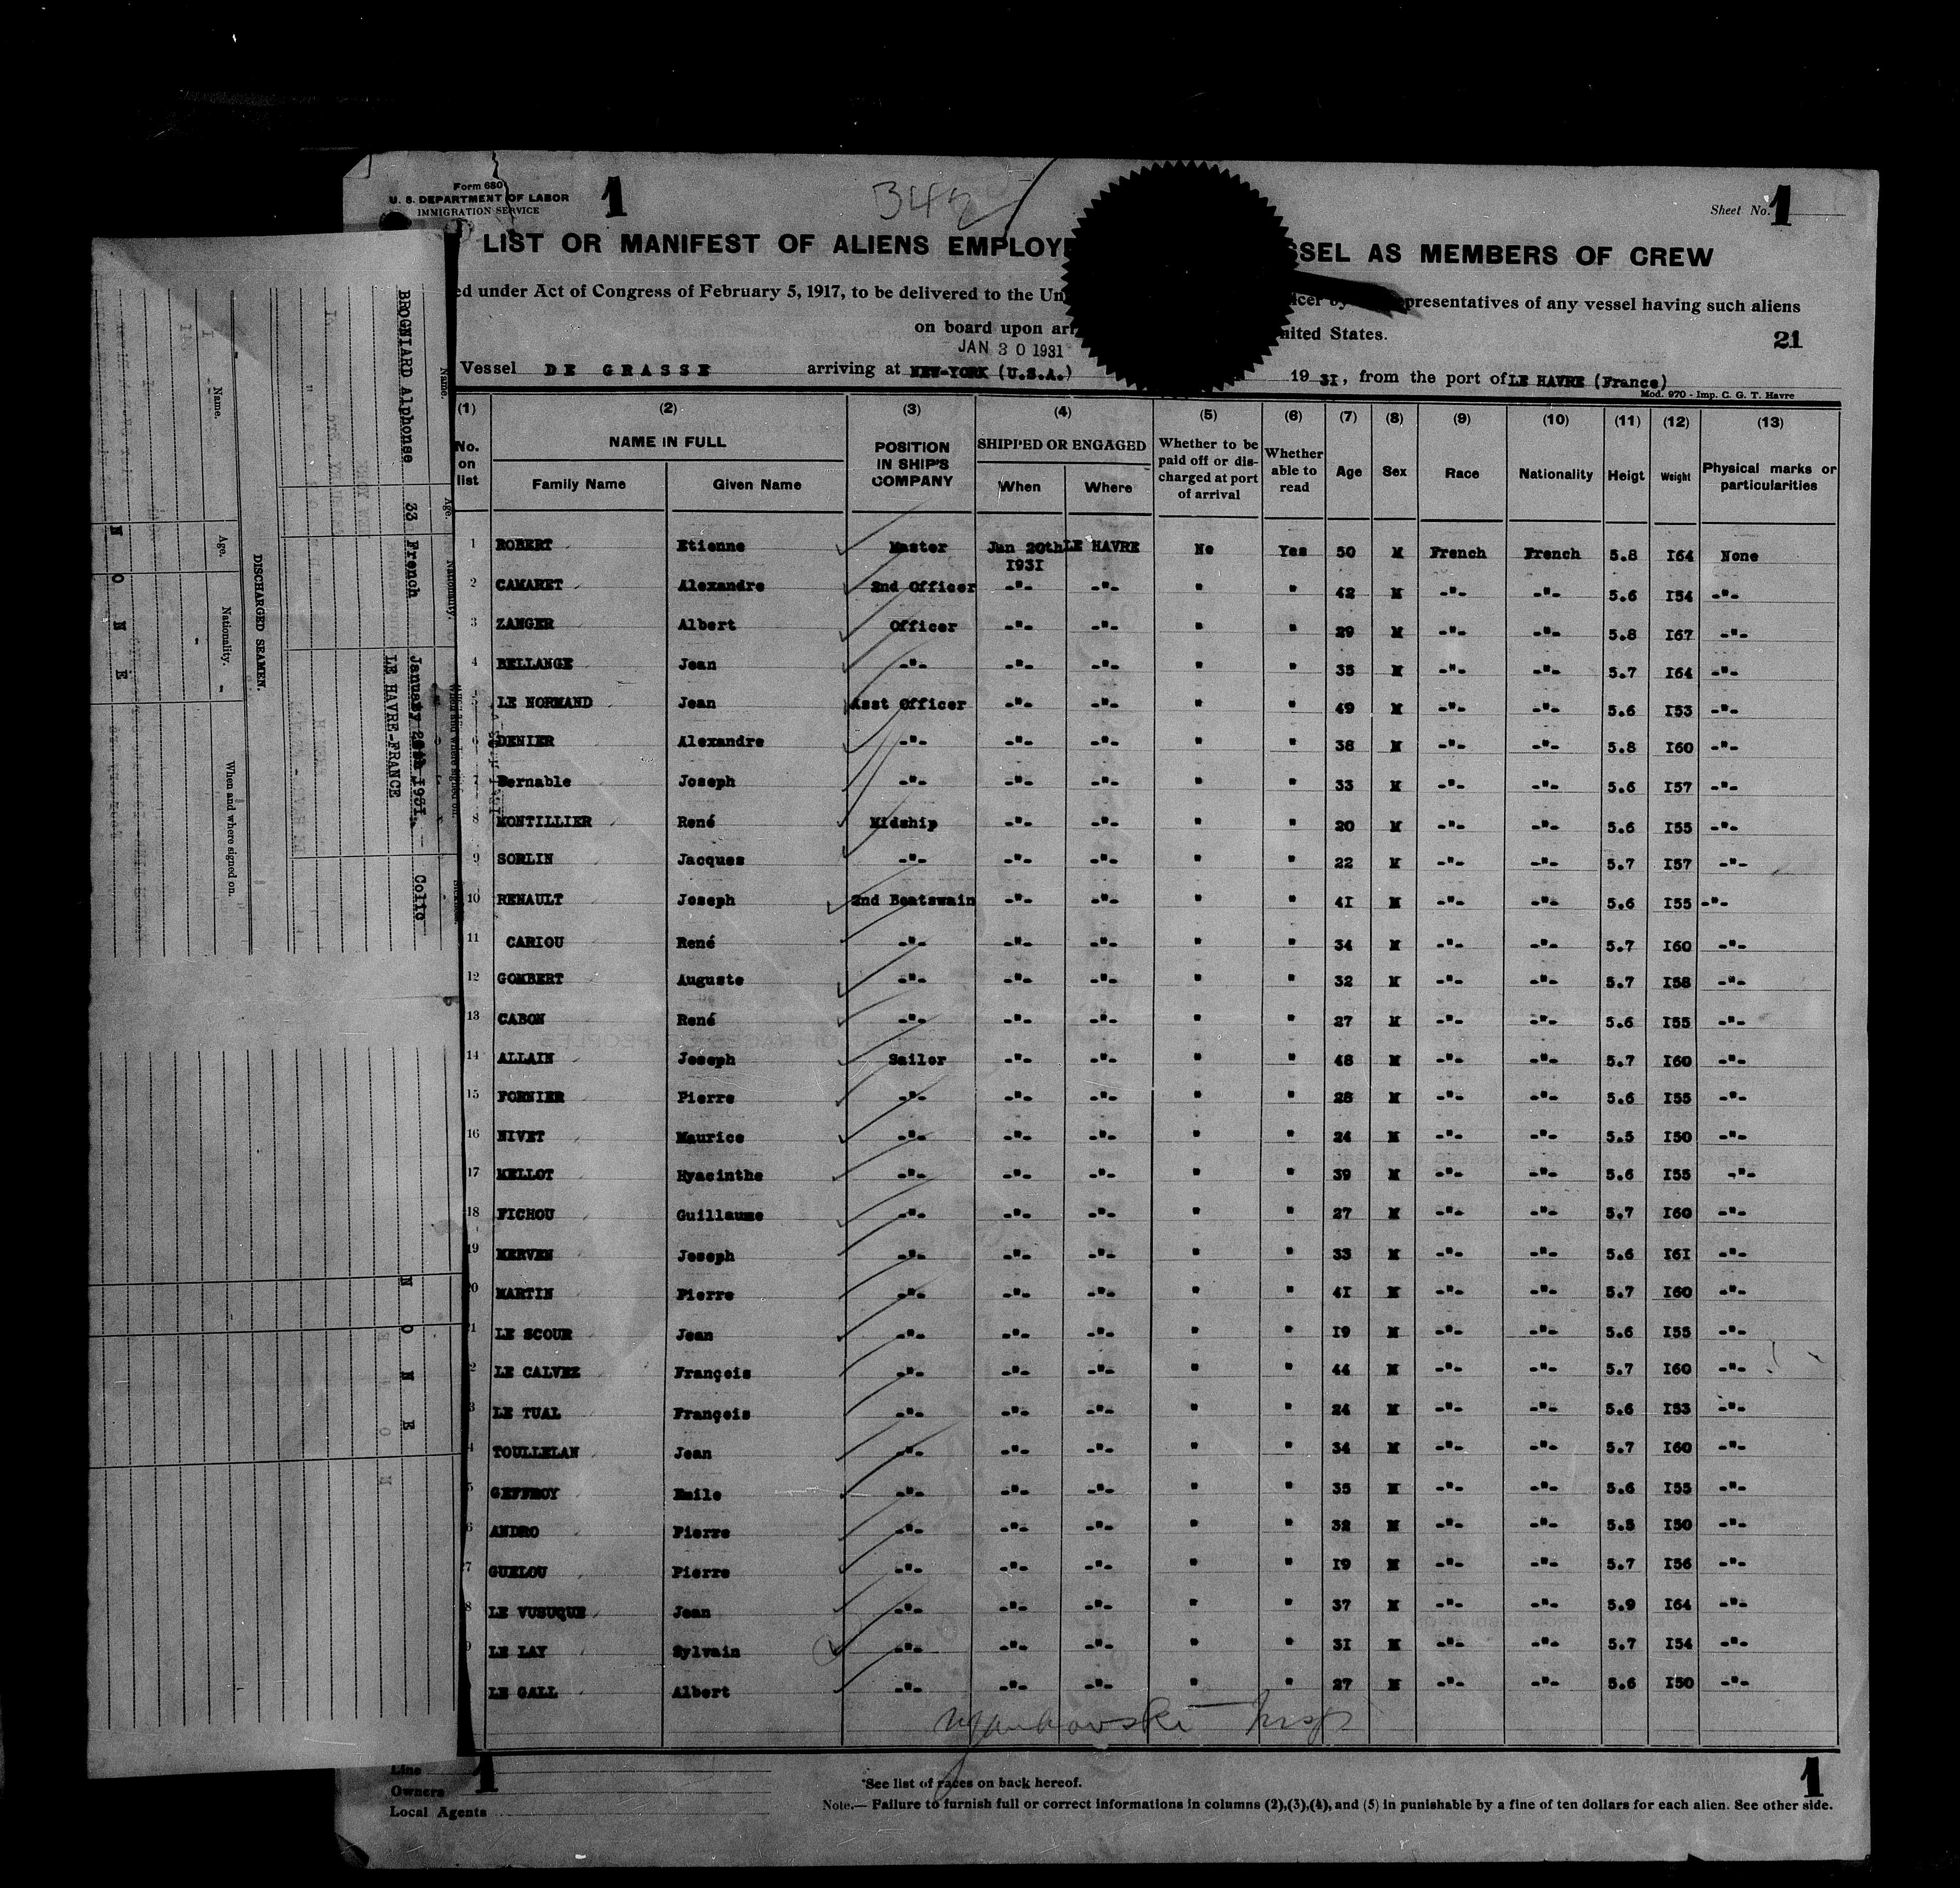 Form 680
U. S. DEPARTMENT OF LABOR
IMMIGRATION SERVICE
1
342
Sheet No. 1
LIST OR MANIFEST OF ALIENS EMPLOYE SSEL AS MEMBERS OF CREW
ed under Act of Congress of February 5, 1917, to be delivered to the Un icer by presentatives of any vessel having such aliens
on board upon arr nited States.
21
JAN 30 1931
Vessel DE GRASSE arriving at NEW-YORK (U.S.A.) 19 3I, from the port of LE HAVRE (France)
Mod. 970 - Imp. C. G. T. Havre
(1) (2) (3) (4) (5) (6) (7) (8) (9) (10) (11) (12) (13)
No. on list NAME IN FULL Family Name Given Name POSITION IN SHIP'S COMPANY SHIPPED OR ENGAGED When Where Whether to be paid off or discharged at port of arrival Whether able to read Age Sex Race Nationality Heigt Weight Physical marks or particularities
1 ROBERT Etienne Master Jan 20th 1931 LE HAVRE No Yes 50 M French French 5.8 I64 None
2 CAMARET Alexandre 2nd Officer -"- -"- " " 42 M -"- -"- 5.6 I54 -"-
3 ZANGER Albert Officer -"- -"- " " 29 M -"- -"- 5.8 I67 -"-
4 BELLANGE Jean -"- -"- -"- " " 35 M -"- -"- 5.7 I64 -"-
LE NORMAND Jean Asst Officer -"- -"- " " 49 M -"- -"- 5.6 I53 -"-
6 DENIER Alexandre -"- -"- -"- " " 38 M -"- -"- 5.8 I60 -"-
7 Bernable Joseph -"- -"- -"- " " 33 M -"- -"- 5.6 I57 -"-
8 MONTILLIER René Midship -"- -"- " " 20 M -"- -"- 5.6 I55 -"-
9 SORLIN Jacques -"- -"- -"- " " 22 M -"- -"- 5.7 I57 -"-
10 RENAULT Joseph 2nd Boatswain -"- -"- " " 4I M -"- -"- 5.6 I55 -"-
11 CARIOU René -"- -"- -"- " " 34 M -"- -"- 5.7 I60 -"-
12 GOMBERT Auguste -"- -"- -"- " " 32 M -"- -"- 5.7 I58 -"-
13 CABON René -"- -"- -"- " " 27 M -"- -"- 5.6 I55 -"-
14 ALLAIN Joseph Sailor -"- -"- " " 48 M -"- -"- 5.7 I60 -"-
15 FORNIER Pierre -"- -"- -"- " " 28 M -"- -"- 5.6 I55 -"-
16 NIVET Maurice -"- -"- -"- " " 24 M -"- -"- 5.5 I50 -"-
17 MELLOT Hyacinthe -"- -"- -"- " " 39 M -"- -"- 5.6 I55 -"-
18 FICHOU Guillaume -"- -"- -"- " " 27 M -"- -"- 5.7 I60 -"-
19 MERVEN Joseph -"- -"- -"- " " 33 M -"- -"- 5.6 I6I -"-
20 MARTIN Pierre -"- -"- -"- " " 4I M -"- -"- 5.7 I60 -"-
21 LE SCOUR Jean -"- -"- -"- " " I9 M -"- -"- 5.6 I55 -"-
2 LE CALVEZ François -"- -"- -"- " " 44 M -"- -"- 5.7 I60 -"-
3 LE TUAL François -"- -"- -"- " " 24 M -"- -"- 5.6 I53 -"-
4 TOULLELAN Jean -"- -"- -"- " " 34 M -"- -"- 5.7 I60 -"-
5 GEFFROY Emile -"- -"- -"- " " 35 M -"- -"- 5.6 I55 -"-
6 ANDRO Pierre -"- -"- -"- " " 32 M -"- -"- 5.5 I50 -"-
7 GUELOU Pierre -"- -"- -"- " " I9 M -"- -"- 5.7 I56 -"-
8 LE VUSUQUE Jean -"- -"- -"- " " 37 M -"- -"- 5.9 I64 -"-
9 LE LAY Sylvain -"- -"- -"- " " 3I M -"- -"- 5.7 I54 -"-
LE GALL Albert -"- -"- -"- " " 27 M -"- -"- 5.6 I50 -"-
Insp
Line
Owners
Local Agents
1
*See list of races on back hereof.
Note.— Failure to furnish full or correct informations in columns (2),(3),(4), and (5) in punishable by a fine of ten dollars for each alien. See other side.
1
Name. Age. Nationality. When and where signed on.
BROGNIARD Alphonse 33 French January 20th 1931. Colic
LE HAVRE-FRANCE
DISCHARGED SEAMEN.
Name. Age. Nationality. When and where signed on.
N O N E
N O N E